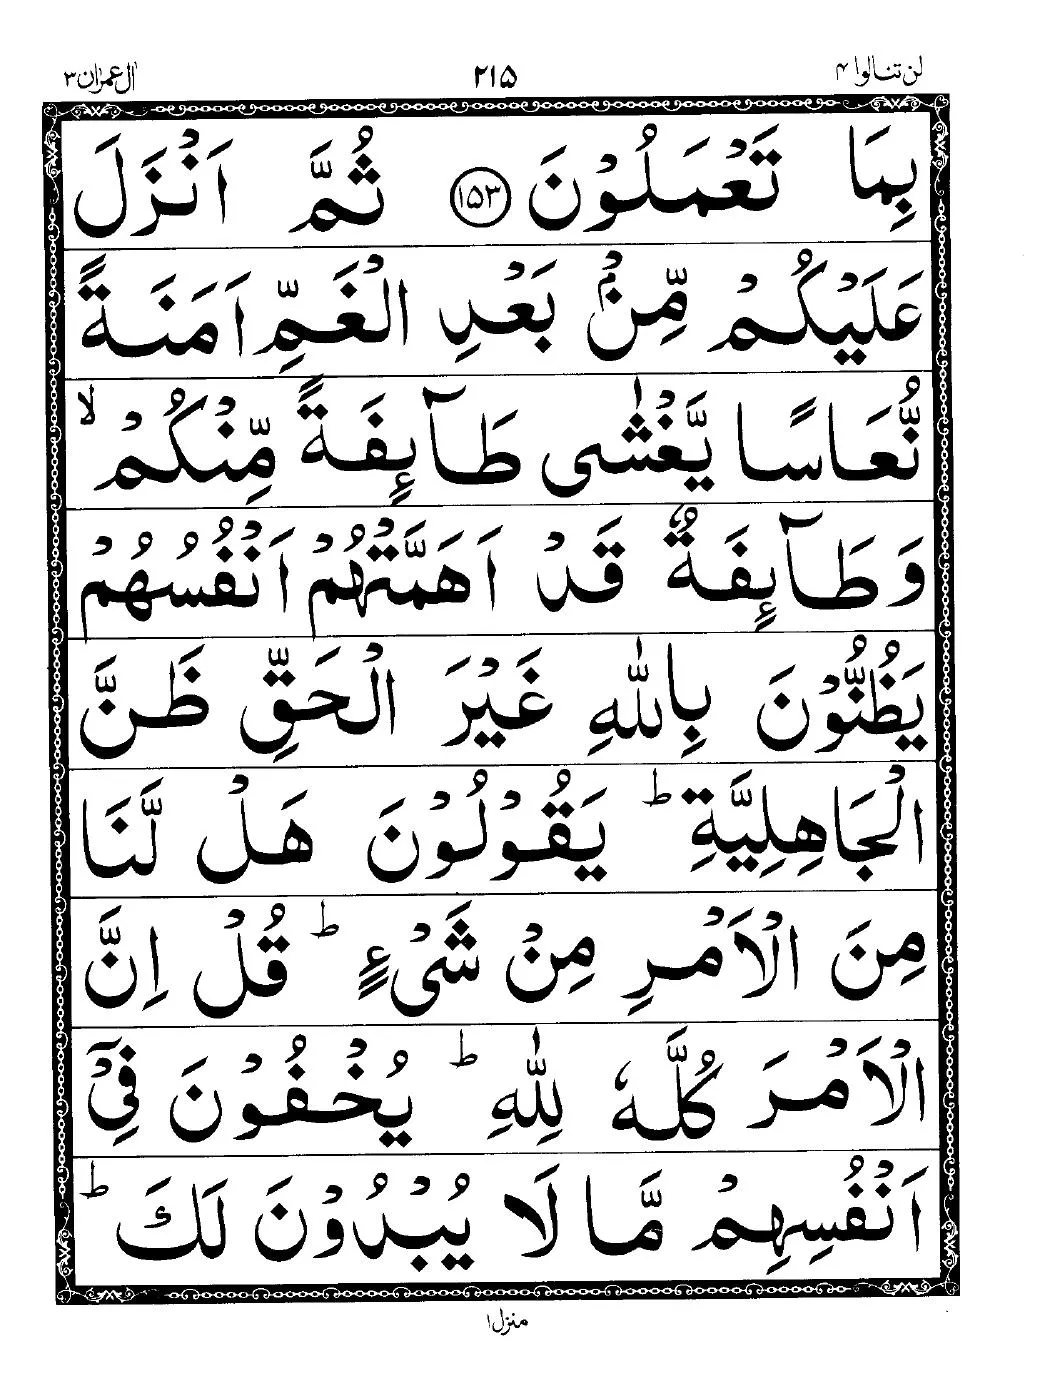 لن تنالوا ۴ ۲۱۵ اٰل عمرٰن ۳
بِمَا تَعْمَلُوْنَ ۱۵۳ ثُمَّ اَنْزَلَ
عَلَيْكُمْ مِّنْۢ بَعْدِ الْغَمِّ اَمَنَةً
نُّعَاسًا يَّغْشٰى طَآىِٕفَةً مِّنْكُمْ ۙ
وَطَآىِٕفَةٌ قَدْ اَهَمَّتْهُمْ اَنْفُسُهُمْ
يَظُنُّوْنَ بِاللّٰهِ غَيْرَ الْحَقِّ ظَنَّ
الْجَاهِلِيَّةِ ؕ يَقُوْلُوْنَ هَلْ لَّنَا
مِنَ الْاَمْرِ مِنْ شَىْءٍ ؕ قُلْ اِنَّ
الْاَمْرَ كُلَّهٗ لِلّٰهِ ؕ يُخْفُوْنَ فِىْۤ
اَنْفُسِهِمْ مَّا لَا يُبْدُوْنَ لَكَ ؕ
منزل ۱